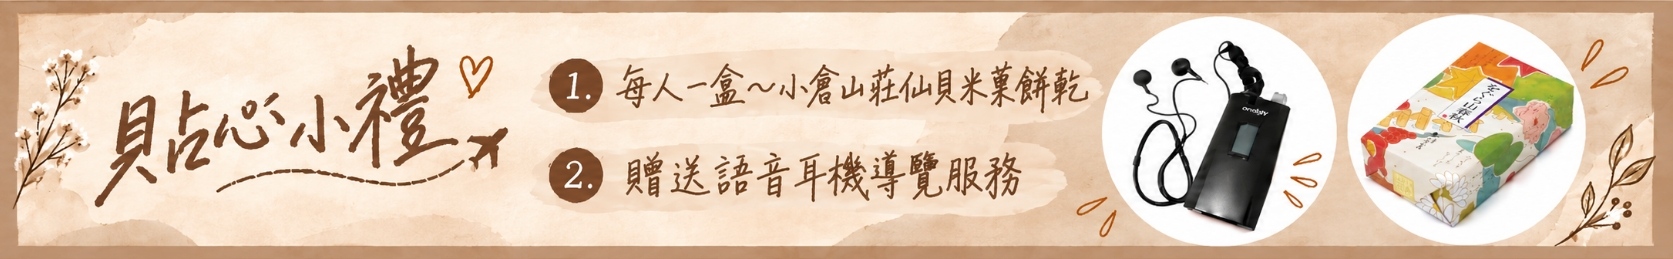 貼心小禮
1. 每人一盒～小倉山莊仙貝米菓餅乾
2. 贈送語音耳機導覽服務
をぐら山春秋